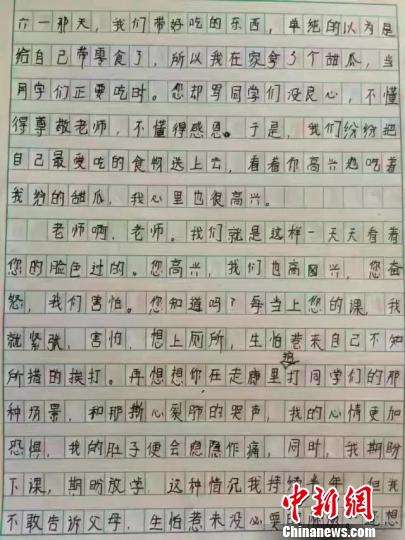 六一那天，我们带好吃的东西，单纯的以为是
给自己带零食了，所以我在家拿了个甜瓜，当
同学们正要吃时。您却骂同学们没良心，不懂
得尊敬老师，不懂得感恩。于是，我们纷纷把
自己最爱吃的食物送上去，看着你高兴地吃着
我给的甜瓜，我心里也很高兴。
老师啊，老师。我们就是这样一天天看着
您的脸色过的。您高兴，我们也高兴，您奋
怒，我们害怕。您知道吗？每当上您的课，我
就紧张，害怕，想上厕所，生怕惹来自己不知
所措的挨打。再想想你在走廊里打同学们的那
种场景，和那撕心裂肺的哭声，我的心情更加
恐惧，我的肚子便会隐隐作痛，同时，我期盼
下课，期盼放学。这种情况我持续半年，但我
不敢告诉父母，生怕惹来没必要
想
中新网